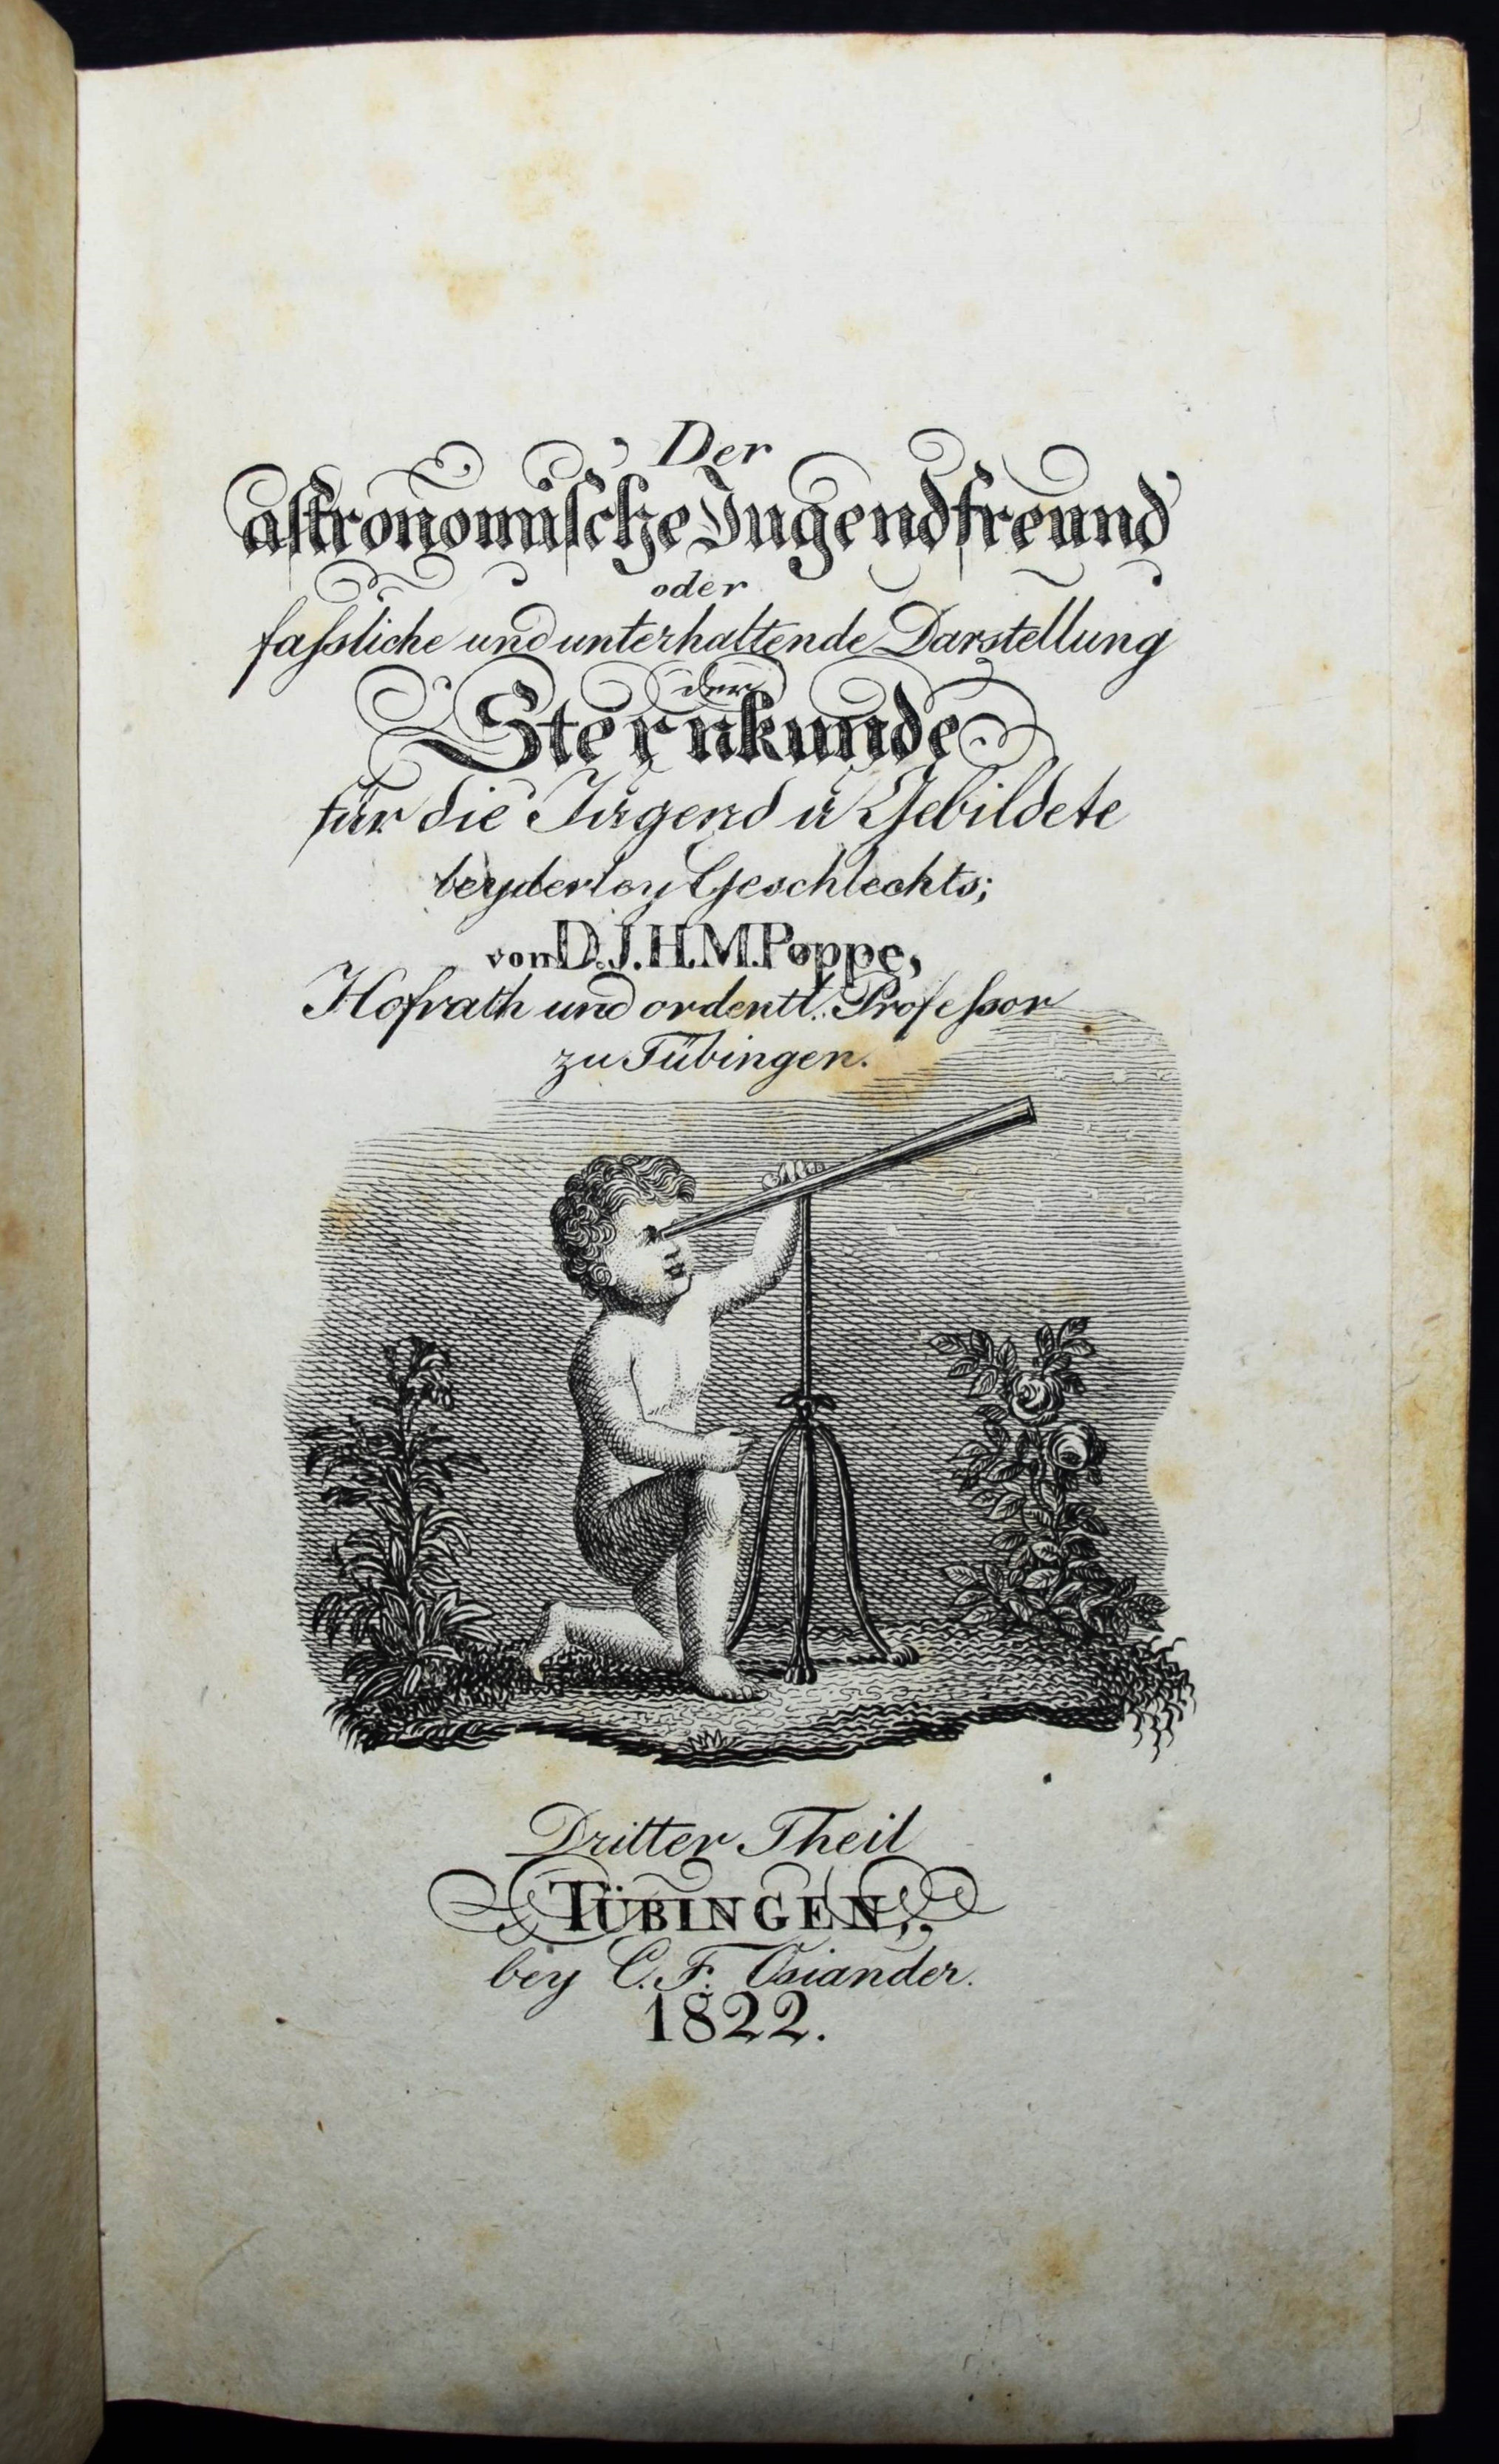 Der
astronomische Jugendfreund
oder
fassliche und unterhaltende Darstellung
der
Sternkunde
für die Jugend u Gebildete
beyderley Geschlechts;
von D. J. H. M. Poppe,
Hofrath und ordentl. Professor
zu Tübingen.
Dritter Theil
TÜBINGEN,
bey C. F. Osiander.
1822.